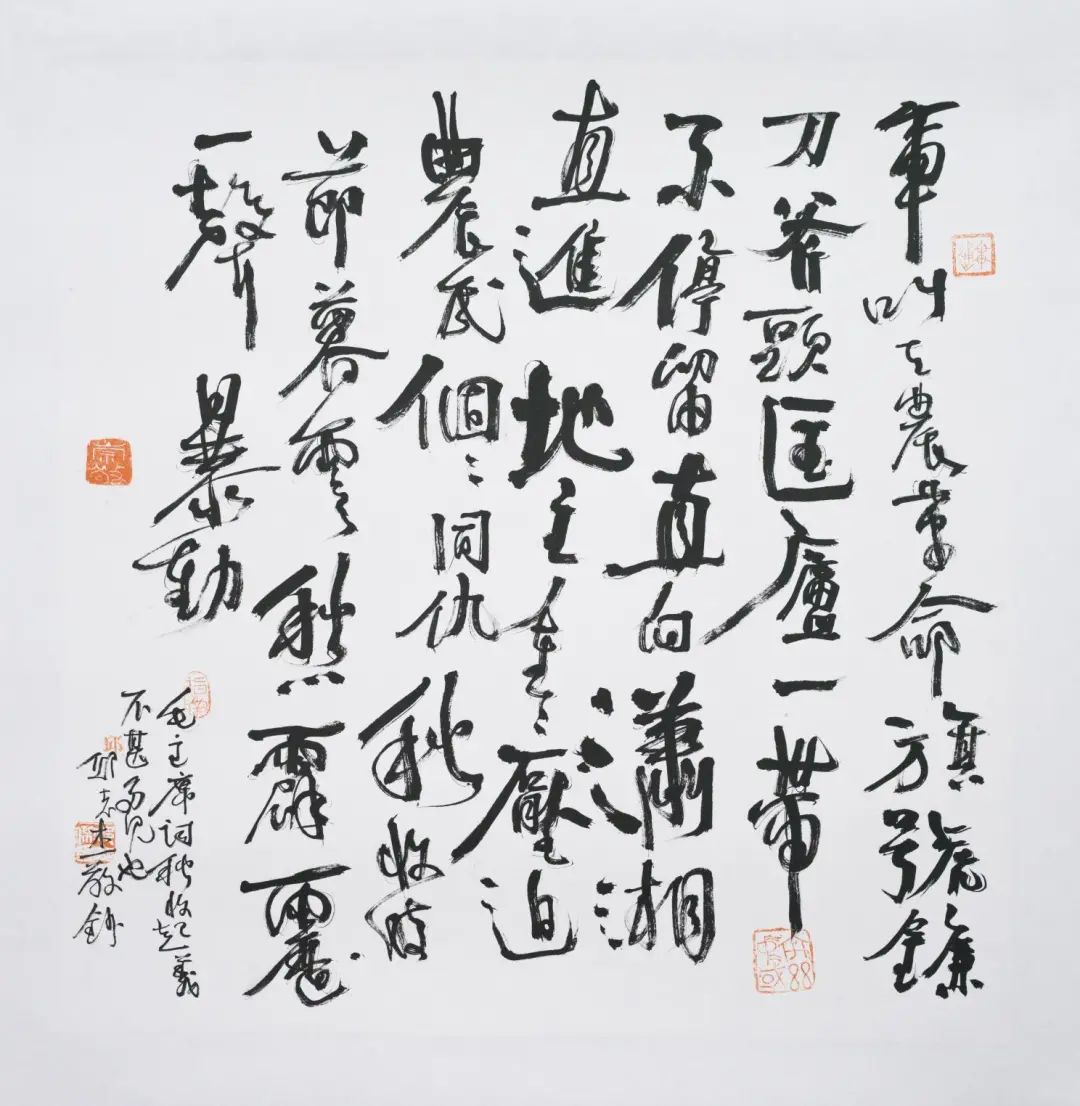 軍叫工農革命旗號鐮
刀斧頭匡廬一帶
不停留直向瀟湘
直進地主重〻壓迫
農民個〻同仇秋收時
節暮雲愁霹靂
一聲暴動
毛主席詞秋收起義
不甚多見也
邱志杰敬鈔